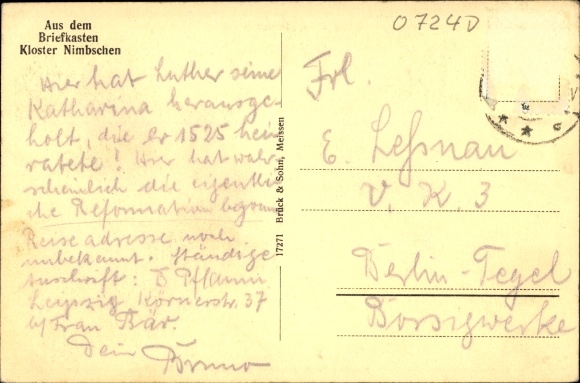 Aus dem
Briefkasten
Kloster Nimbschen
Hier hat Luther seine
Katharina herausge-
holt, die er 1525 hei-
ratete! Hier hat wahr-
scheinlich die eigentli-
che Reformation begonnen
Reiseadresse noch
unbekannt. Ständige
Anschrift: B Pframm
Leipzig Körnerstr. 37
b/ Frau Bär.
Dein Bruno
17271 Brück & Sohn, Meissen
0724D
Frl.
E. Leßnau
V. K. 3
Berlin-Tegel
Borsigwerke